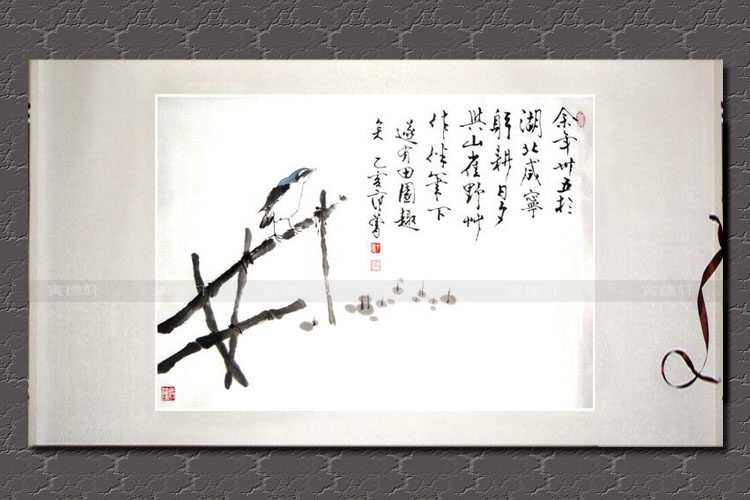 余年卅五於
湖北咸寧
躬耕日夕
與山雀野艸
作伴筆下
遂有田園趣
矣 乙亥范曾
寅德轩
寅德轩